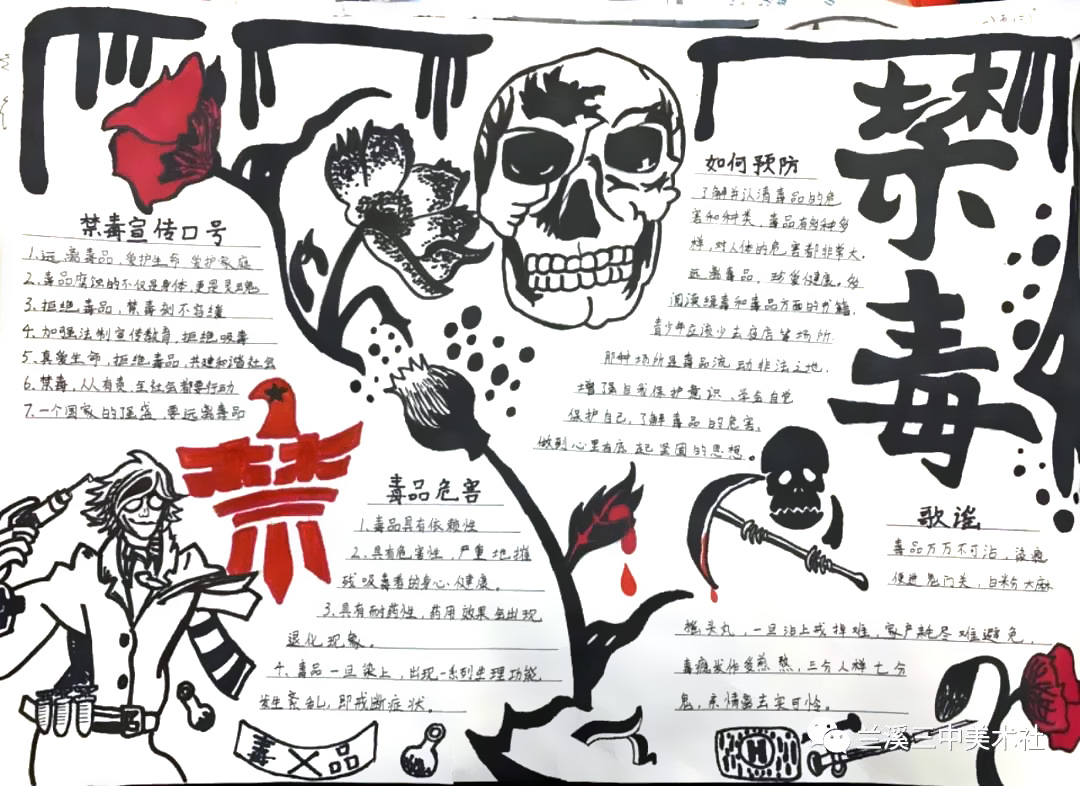 禁毒
禁毒宣传口号
1.远离毒品,爱护生命 爱护家庭
2.毒品腐蚀的不仅是身体,更是灵魂
3.拒绝毒品,禁毒刻不容缓
4.加强法制宣传教育,拒绝吸毒
5.真爱生命,拒绝毒品,共建和谐社会
6.禁毒,人人有责,全社会都要行动
7.一个国家的强盛,要远离毒品
禁
如何预防
了解并认清毒品的危
害和种类,毒品有多种多
样,对人体的危害都非常大.
远离毒品,珍爱健康。多
阅读缉毒和毒品方面的书籍.
青少年应该少去夜店等场所.
那种场所是毒品流动非法之地,
增了强自我保护意识,学会自觉
保护自己,了解毒品的危害。
做到心里有底 起坚固的思想。
毒品危害
1.毒品具有依赖性
2.具有危害性,严重地摧
残吸毒者的身心健康。
3.具有耐药性,药用效果会出现
退化现象。
4.毒品一旦染上,出现一系列生理功能
发生紊乱,即戒断症状。
歌谣
毒品万万不可沾,
便进鬼门关,白粉大麻
摇头丸,一旦沾上戒掉难,家产耗尽难避免,
毒瘾发作受煎熬,三分人样七分
鬼,亲情离去实可怜。
毒品
H
兰溪二中美术社